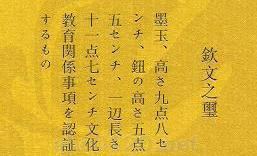 欽文之璽
墨玉、高さ九点八セ
ンチ、鈕の高さ五点
五センチ、一辺長さ
十一点七センチ文化
教育関係事項を認証
するもの